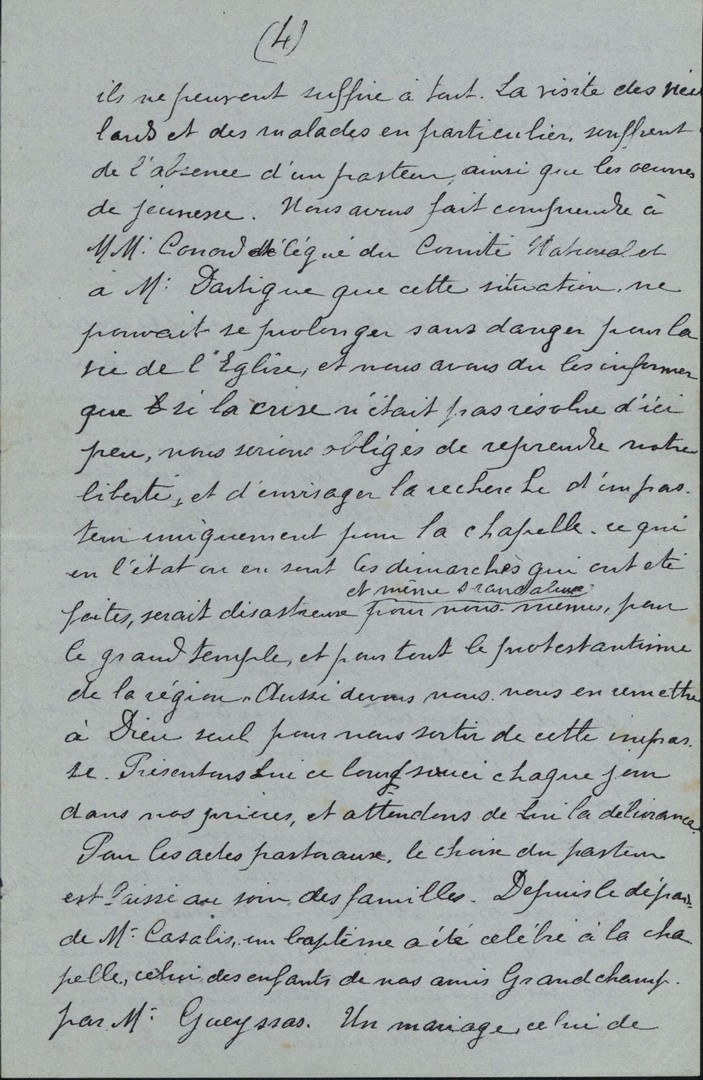 (4)
ils ne peuvent suffire à tout. La visite des vieil
lards et des malades en particulier, souffrent
de l'absence d'un pasteur, ainsi que les oeuvres
de jeunesse. Nous avons fait comprendre à
MM. Conord délégué du Comité National et
à M. Dartigue que cette situation, ne
pouvait se prolonger sans danger pour la
vie de l'Eglise, et nous avons du les informer
que si la crise n'était pas résolue d'ici
peu, nous serions obligés de reprendre notre
liberté, et d'envisager la recherche d'un pas-
teur uniquement pour la chapelle. ce qui
en l'état ou en sont les démarches qui ont été
et même scandaleux
faites, serait disastreuse pour nous mêmes, pour
le grand temple, et pour tout le protestantisme
de la région. Aussi devons nous nous en remettre
à Dieu seul pour nous sortir de cette impas-
se. Présentons Lui ce lourd souci chaque jour
dans nos prières, et attendons de Lui la délivrance.
Pour les actes pastoraux, le choix du pasteur
est laissé au soin des familles. Depuis le départ
de M. Casalis, un baptême a été célébré à la cha
pelle, celui des enfants de nos amis Grandchamp.
par M. Gueyssas. Un mariage, celui de